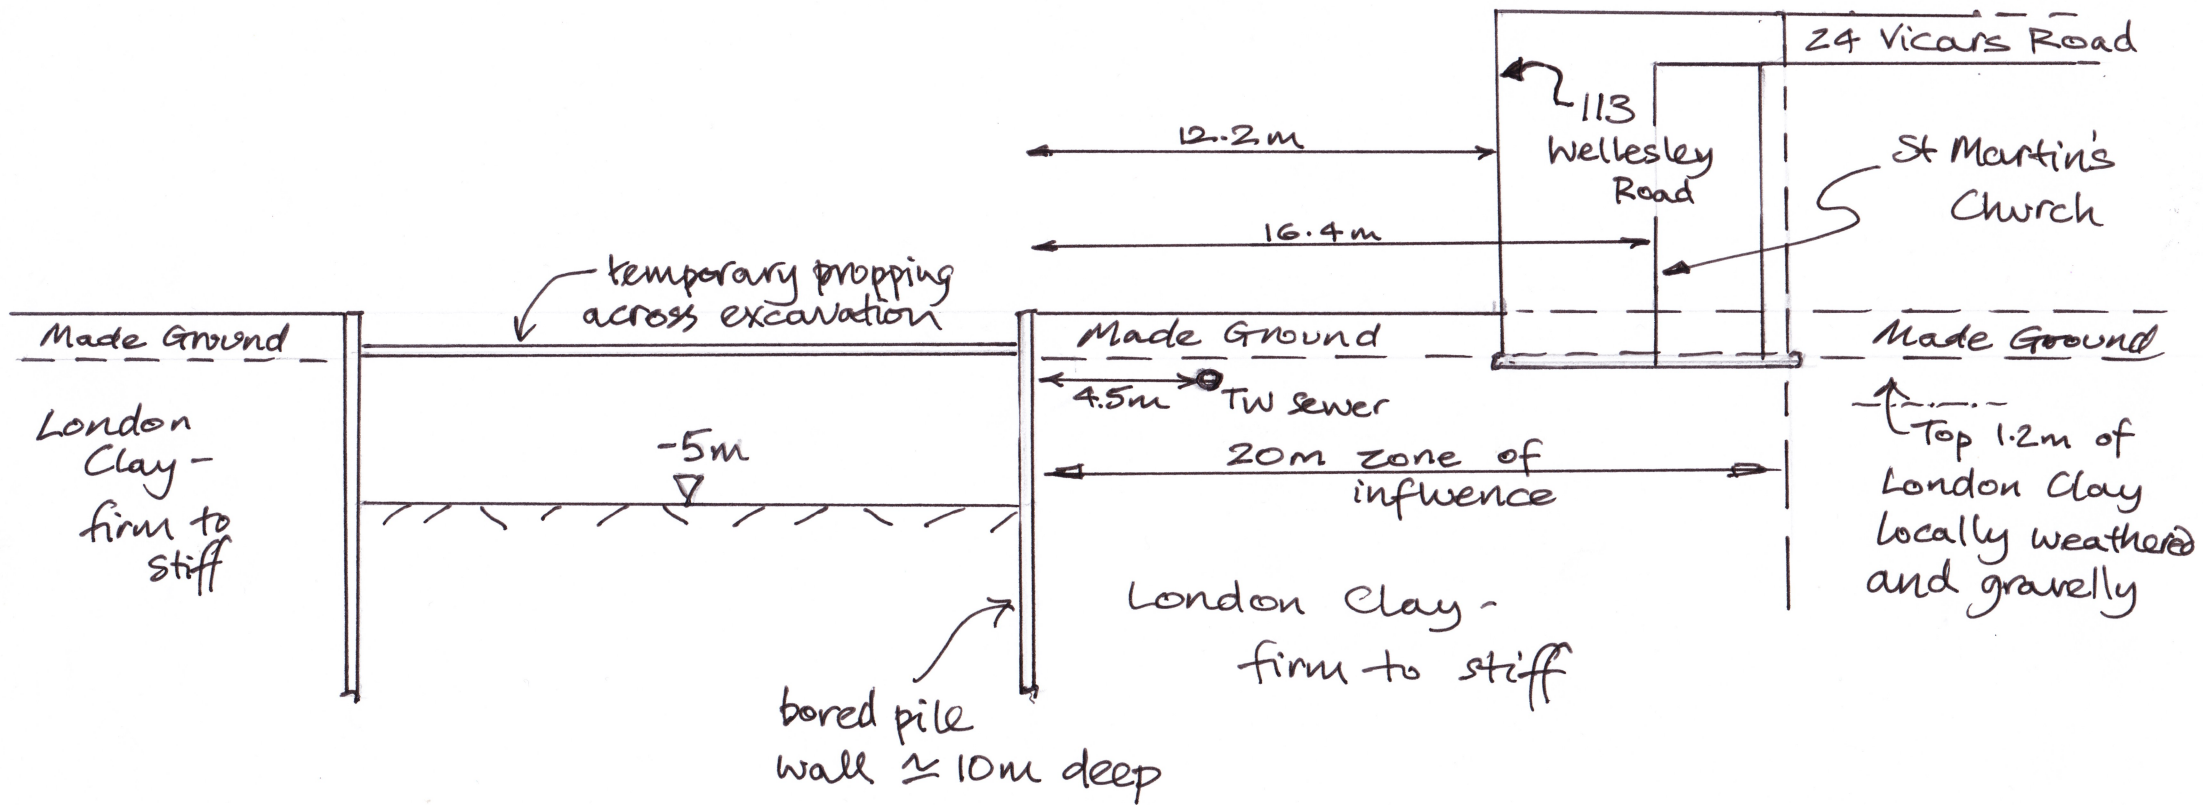 24 Vicars Road
113
Wellesley
Road
12.2m
St Martin's
Church
16.4m
temporary propping
across excavation
Made Ground
Made Ground
Made Ground
4.5m
TW sewer
London
Clay -
firm to
stiff
-5m
20m zone of
influence
Top 1.2m of
London Clay
locally weathered
and gravelly
London Clay -
firm to stiff
bored pile
wall ≃ 10m deep